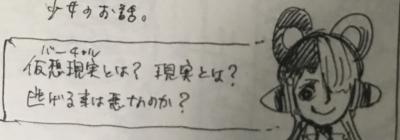 少女のお話。
バーチャル
仮想現実とは? 現実とは?
逃げる事は悪なのか?